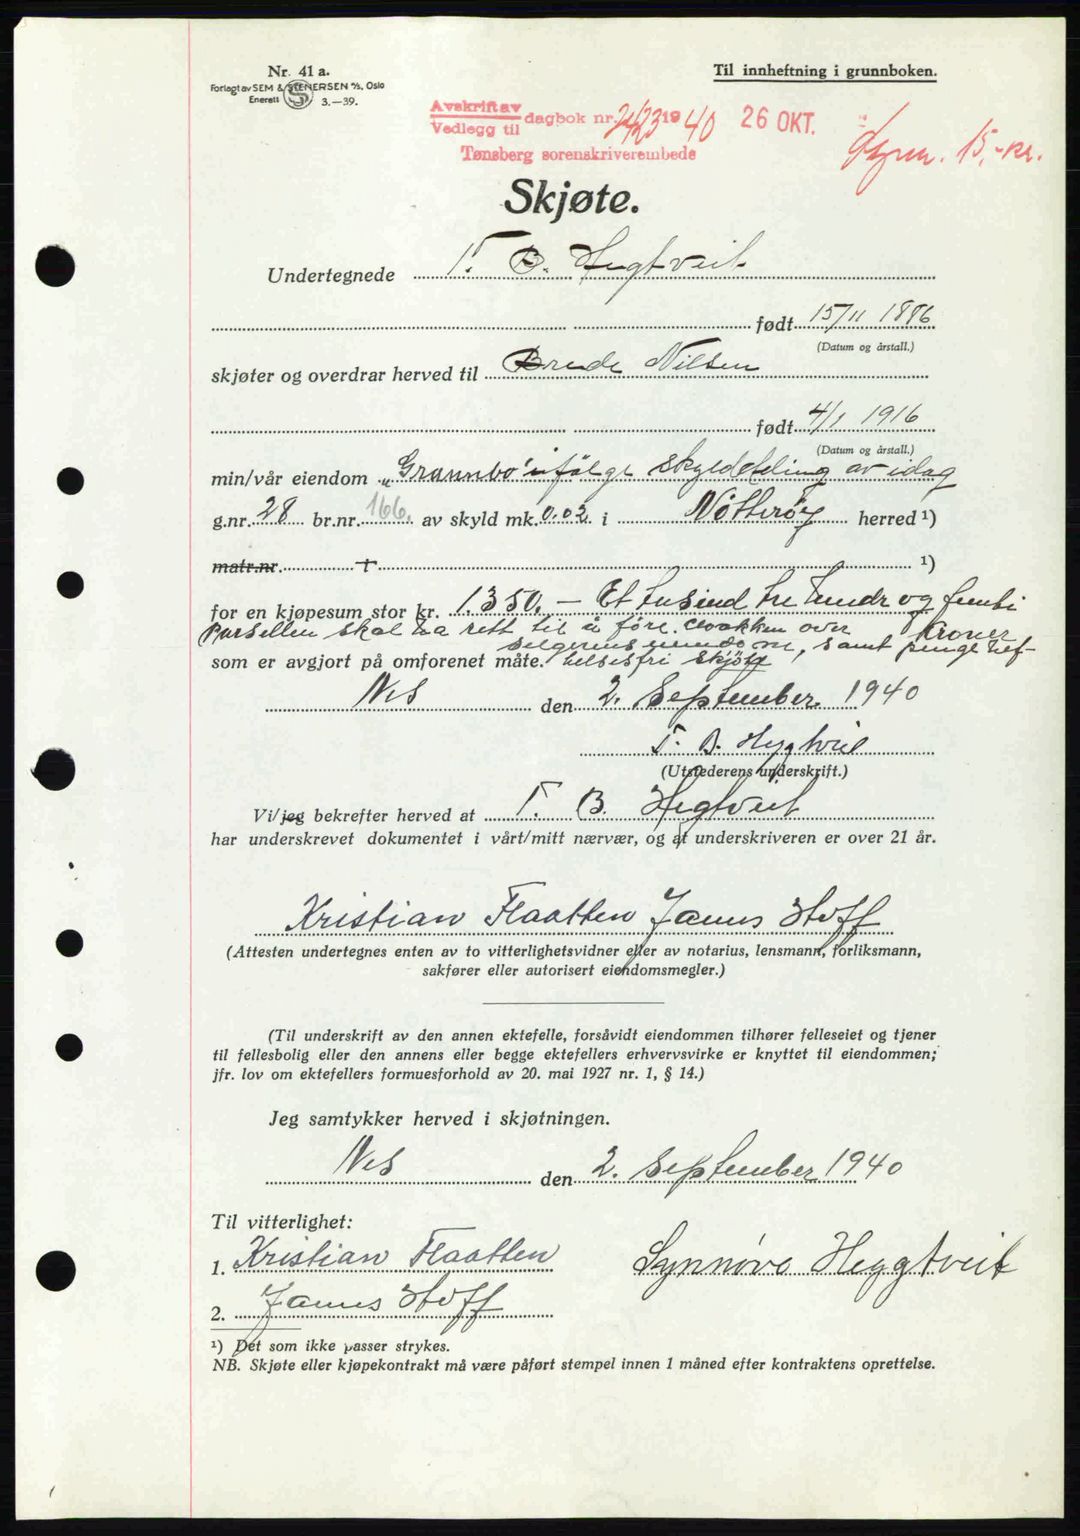 Nr. 41 a.
Forlagt av SEM & STENERSEN A/S, Oslo
Enerett S 3.—39.
Til innheftning i grunnboken.
Avskrift av
Vedlegg til dagbok nr. 2423 1940 26 OKT.
Tønsberg sorenskriverembede
15,- kr.
Skjøte.
Undertegnede T. B. Hegtveit
født 15/11 1886
(Datum og årstall.)
skjøter og overdrar herved til Brede Nilsen
født 4/1 1916
(Datum og årstall.)
min/vår eiendom „Grannbo" ifølge skylddeling av idag
g.nr. 28 br.nr. 166. av skyld mk. 0.02. i Nøtterøy herred ¹)
matr.nr. ¹)
for en kjøpesum stor kr. 1.350.- Et tusind tre hundr og femti
Kroner
Parsellen skal ha rett til å føre cloakken over
selgerens eiendom, samt penge hef-
som er avgjort på omforenet måte. telsesfri skjøte
Nes den 2. September 1940
T. B. Hegtveit
(Utstederens underskrift.)
Vi/jeg bekrefter herved at T. B. Hegtveit
har underskrevet dokumentet i vårt/mitt nærvær, og at underskriveren er over 21 år.
Kristian Flaatten Janus Hoff
(Attesten undertegnes enten av to vitterlighetsvidner eller av notarius, lensmann, forliksmann,
sakfører eller autorisert eiendomsmegler.)
(Til underskrift av den annen ektefelle, forsåvidt eiendommen tilhører felleseiet og tjener
til fellesbolig eller den annens eller begge ektefellers erhvervsvirke er knyttet til eiendommen;
jfr. lov om ektefellers formuesforhold av 20. mai 1927 nr. 1, § 14.)
Jeg samtykker herved i skjøtningen.
Nes den 2. September 1940
Til vitterlighet:
1. Kristian Flaatten Synnøve Heggtveit
2. Janus Hoff
¹) Det som ikke passer strykes.
NB. Skjøte eller kjøpekontrakt må være påført stempel innen 1 måned efter kontraktens oprettelse.